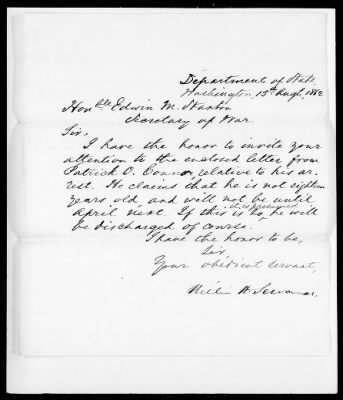 Department of State,
Washington, 15th Augt, 1862
Honble Edwin M. Stanton
Secretary of War.
Sir,
I have the honor to invite your
attention to the enclosed letter from
Patrick O. Connor, relative to his ar
rest. He claims that he is not eighteen
years old, and will not be until
April next. If this is so, it is presumed he will
be discharged of course.
I have the honor to be,
Sir,
Your obedient servant,
William H. Seward.